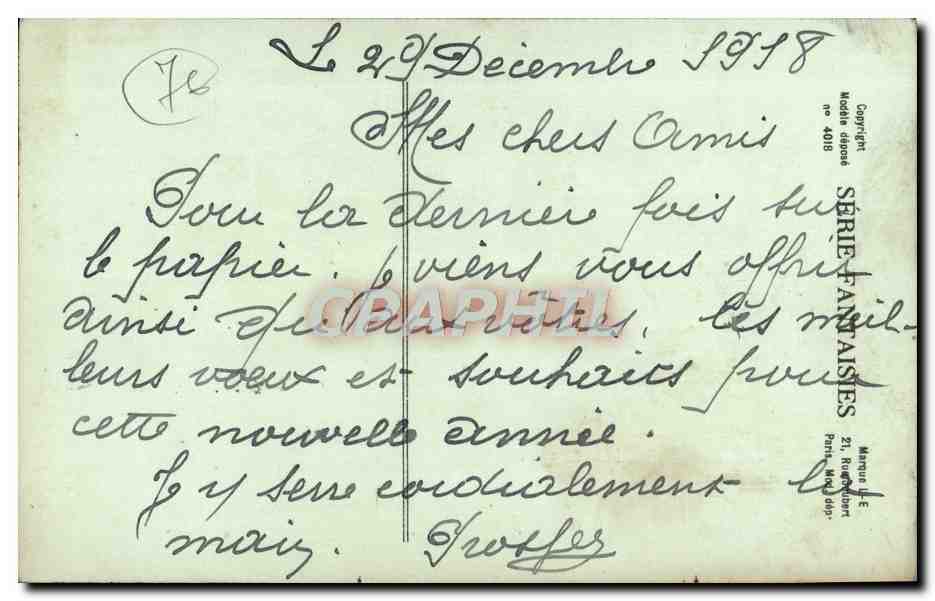 78
Le 29 Décembre 1918
Mes chers Amis
Pour la dernière fois sur
le papier. Je viens vous offrir
ainsi qu' aux vôtres, les meil-
leurs voeux et souhaits pour
cette nouvelle année.
J y serre cordialement la
main. Prosper
Copyright
Modèle déposé
n° 4018
SÉRIE FANTAISIES
Marque L-E
21, Rue
Paris, Mod. dép.
CPAPHIL